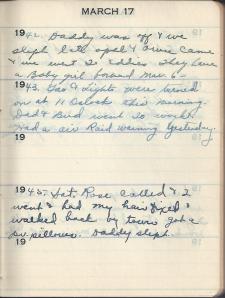 MARCH 17
1942. Daddy was off & we
slept late. Opal & Ernie came
& we went to Eddies. They have
a Baby girl Mar. 6 -
1943. Gas & Lights were turned
on at 11 Oclock this morning.
Dad & Bud went to work.
Had a air Raid warning yesterday.
19
1945 - Sat. Rose called & I
went & had my hair fixed &
walked back by town got a
pillows. Daddy slept.
19